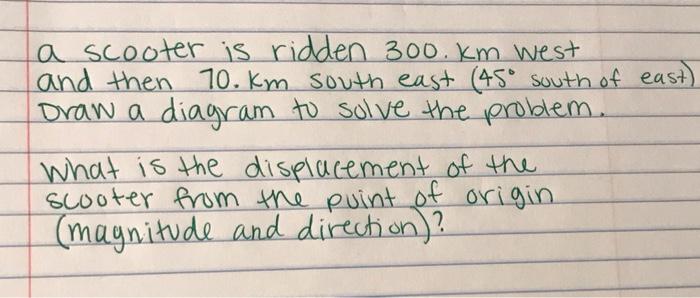 a scooter is ridden 300. km west
and then 70. km south east (45° south of east)
Draw a diagram to solve the problem.
What is the displacement of the
scooter from the point of origin
(magnitude and direction)?